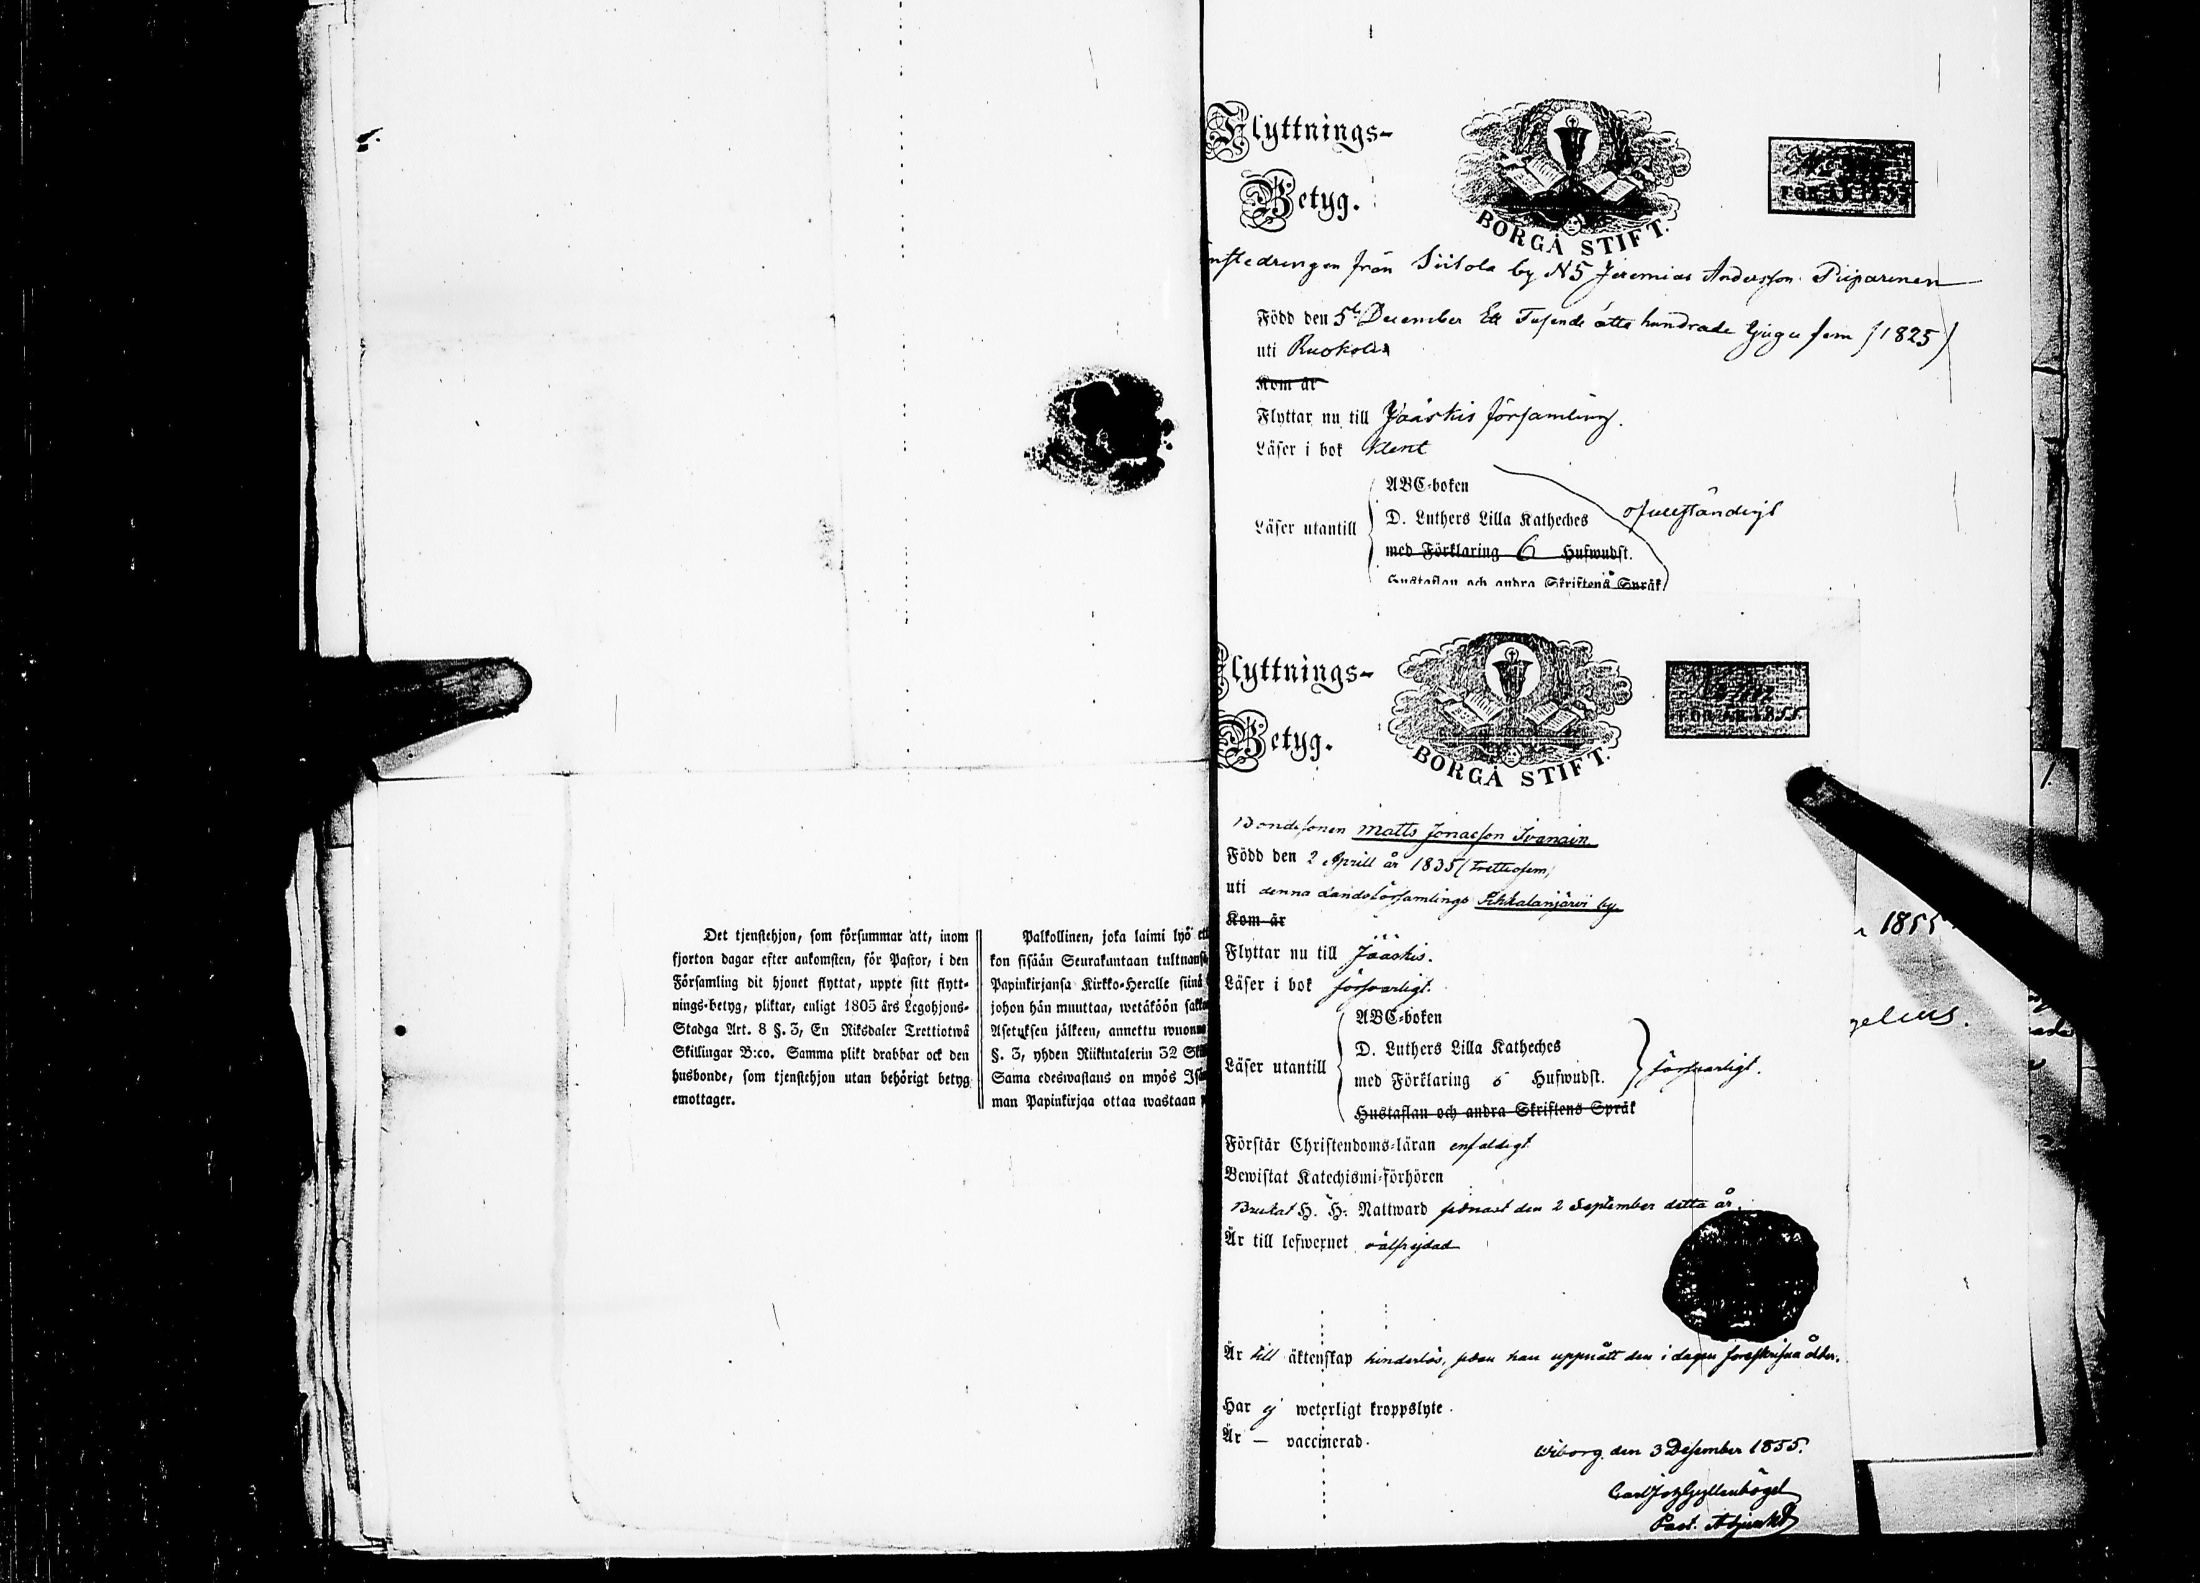 Det tjenstehjon, som försummar att, inom
fjorton dagar efter ankomsten, för Pastor, i den
Församling dit hjonet flyttat, uppte sitt flytt-
nings-betyg, pliktar, enligt 1805 års Legohjons-
Stadga Art. 8 §. 3, En Riksdaler Trettiotwå
Skillingar B:co. Samma plikt drabbar ock den
husbonde, som tjenstehjon utan behörigt betyg
emottager.
Palkollinen, joka laimi lyö
kon sisään Seurakuntaan tultuansa
Papinkirjansa Kirkko-Heralle siinä
johon hän muuttaa, wetäköön
Asetuksen jälkeen, annettu wuonna
§. 3, yhden Riikintalerin 32
Sama edeswastaus on myös
man Papinkirjaa ottaa wastaan
Flyttnings-
Betyg.
BORGÅ STIFT.
från Siitola by N5 Jeremias Andersson Piiparinen
Född den 5te December Ett Tusende åtta hundrade tjugu fem (1825)
uti Ruokolax
Kom år
Flyttar nu till Jääskis församling.
Läser i bok klent
ABC-boken
Läser utantill D. Luthers Lilla Katheches ofullständigt
med Förklaring 6 Hufwudst.
Hustaflan och andra Skriftens Språk
Flyttnings-
Betyg.
BORGÅ STIFT.
Bondesonen Matts Jonasson Ivanain
Född den 2 Aprill år 1835 (trettiofem)
uti denna Landsförsamlings Ihkalanjärvi by
Kom år
Flyttar nu till Jääskis.
Läser i bok försvarligt.
ABC-boken
D. Luthers Lilla Katheches
Läser utantill med Förklaring 5 Hufwudst. försvarligt.
Hustaflan och andra Skriftens Språk
Förstår Christendoms-läran enfaldigt
Bewistat Katechismi-förhören
Brukat H. H. Nattward senast den 2 September detta år.
Är till lefwernet välfrejdad
Är till äktenskap hinderlös, sedan han uppnått den i lagen föreskrifna ålder.
Har ej weterligt kroppslyte.
Är — vaccinerad.
Wiborg den 3 December 1855.
Carl Joh Gyllenbögel
Past. Adjunkt
1855
gelius.